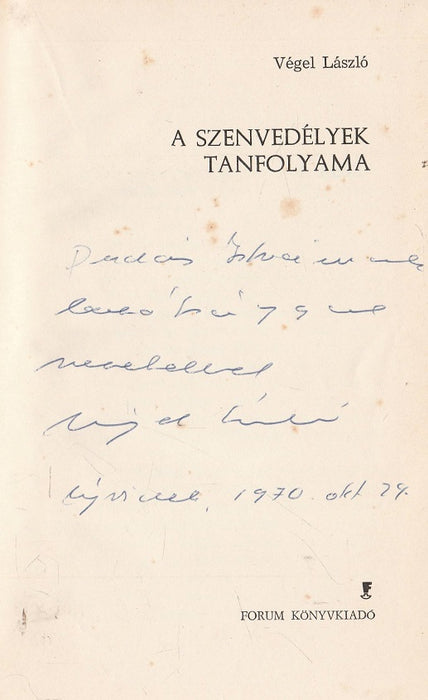 Végel László
A SZENVEDÉLYEK
TANFOLYAMA
Dudás Istvánnak
barátsággal
szeretettel
Végel László
Újvidék, 1970. okt 29.
FORUM KÖNYVKIADÓ